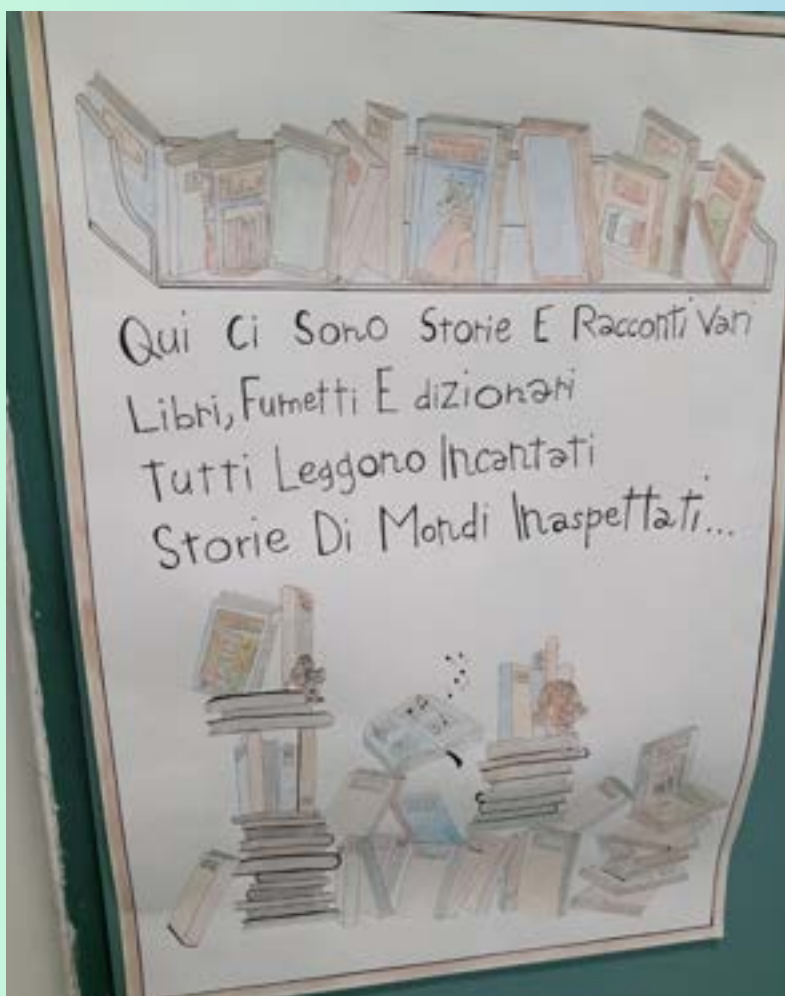 Qui Ci Sono Storie E Racconti Vari
Libri, Fumetti E dizionari
Tutti Leggono Incantati
Storie Di Mondi Inaspettati...